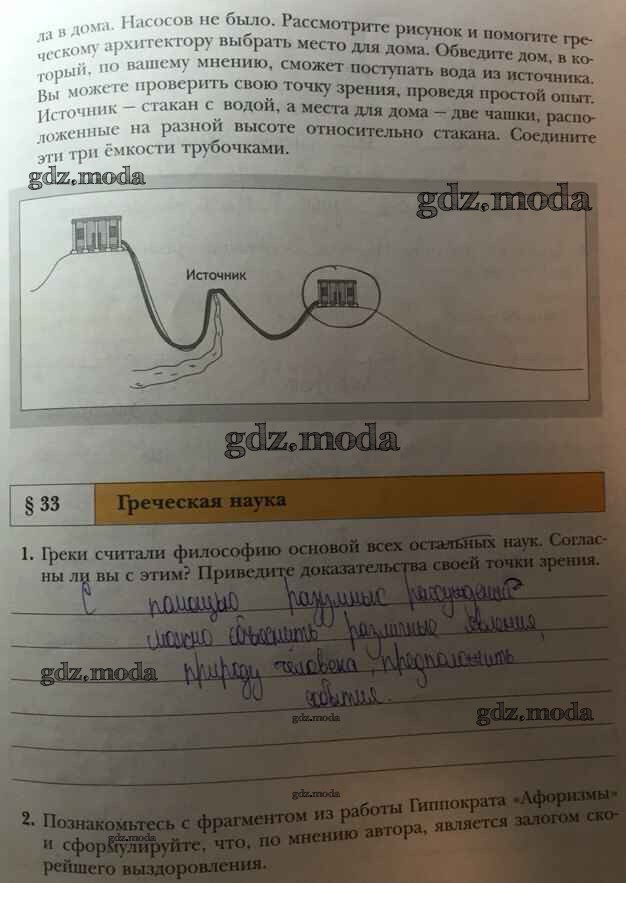 ла в дома. Насосов не было. Рассмотрите рисунок и помогите гре-
ческому архитектору выбрать место для дома. Обведите дом, в ко-
торый, по вашему мнению, сможет поступать вода из источника.
Вы можете проверить свою точку зрения, проведя простой опыт.
Источник — стакан с водой, а места для дома — две чашки, распо-
ложенные на разной высоте относительно стакана. Соедините
эти три ёмкости трубочками.
gdz.moda
gdz.moda
Источник
gdz.moda
§ 33 Греческая наука
1. Греки считали философию основой всех остальных наук. Соглас-
ны ли вы с этим? Приведите доказательства своей точки зрения.
С помощью разумных рассуждений
можно объяснить различные явления,
gdz.moda природу человека, предположить
события.
gdz.moda
gdz.moda
gdz.moda
2. Познакомьтесь с фрагментом из работы Гиппократа «Афоризмы»
gdz.moda
и сформулируйте, что, по мнению автора, является залогом ско-
рейшего выздоровления.